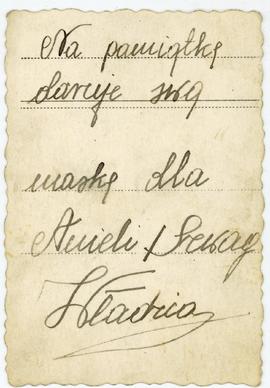 Na pamiątkę
daruje swą
maskę dla
Anieli
Władzia